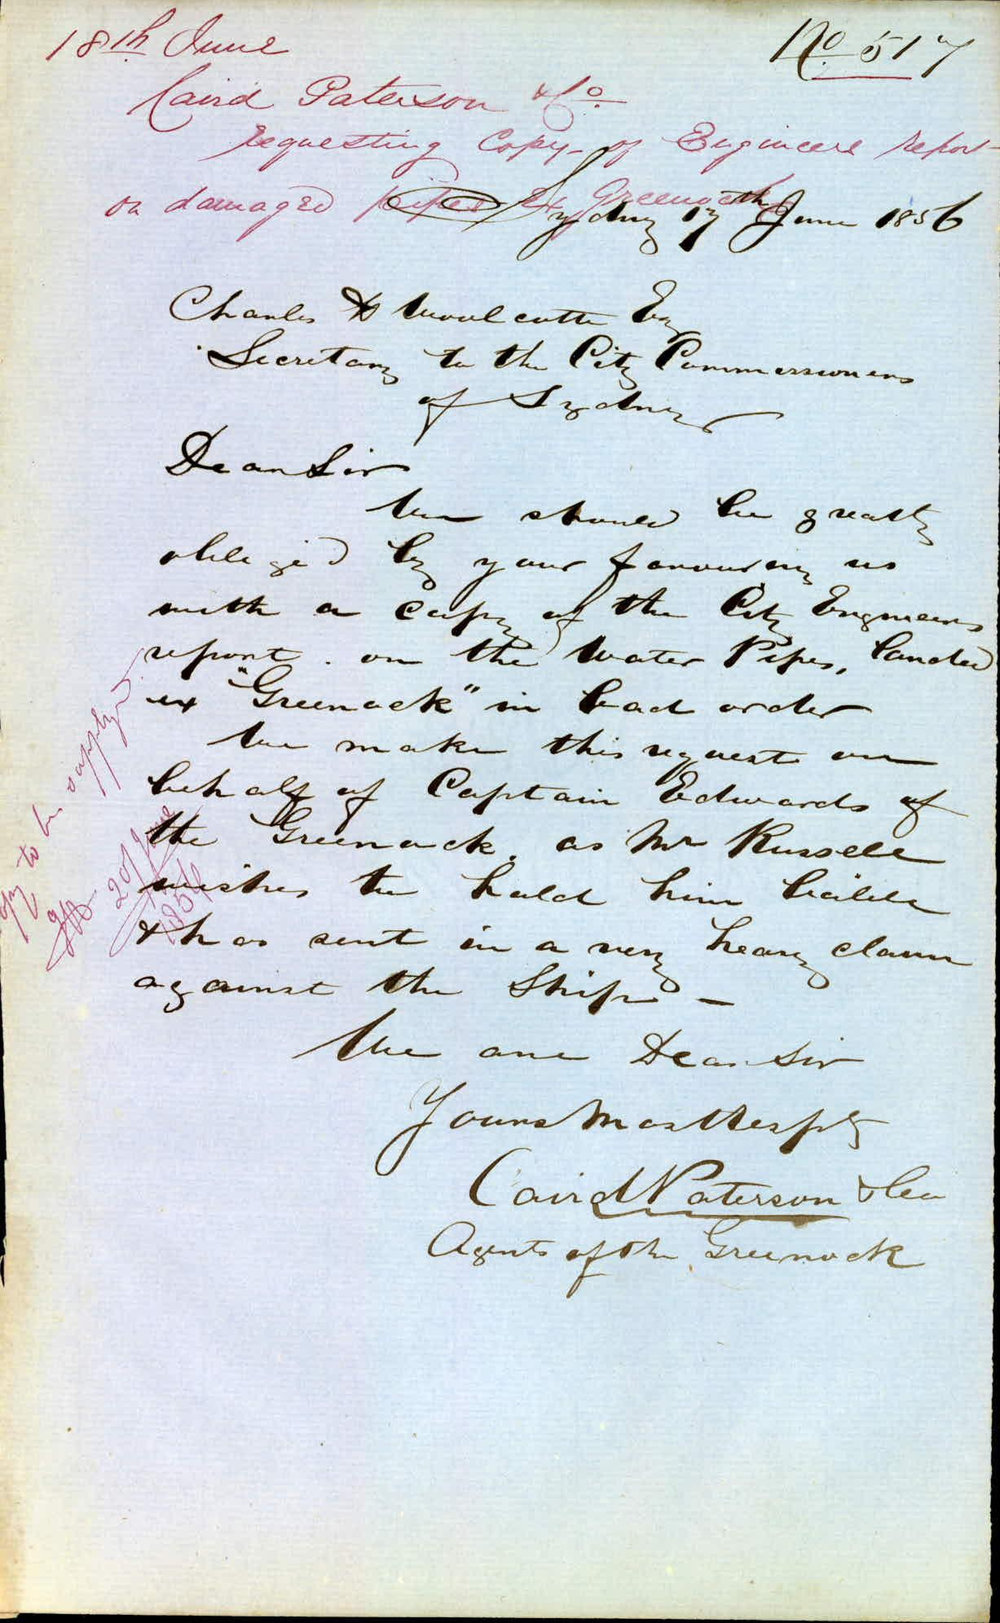 18th June
No 517
Caird Paterson & Co
requesting Copy of Engineers report
on damaged pipes Ex Greenock
Sydney 17th June 1856
Charles H Woolcotte Esq
Secretary to the City Commissioners
of Sydney
Dear Sir
We should be greatly
oblige'd by your favouring us
with a copy of the City Engineers
report on the Water Pipes, landed
ex "Greenock" in bad order
We make this request on
behalf of Captain Edwards of
the Greenock, as Mr Russell
wishes to hold him liable
& has sent in a very heavy claim
against the Ship –
We are Dear Sir
Yours Most Respfly
Caird Paterson & Co
Agents of the Greenock
to be supplyd.
20/June
1856